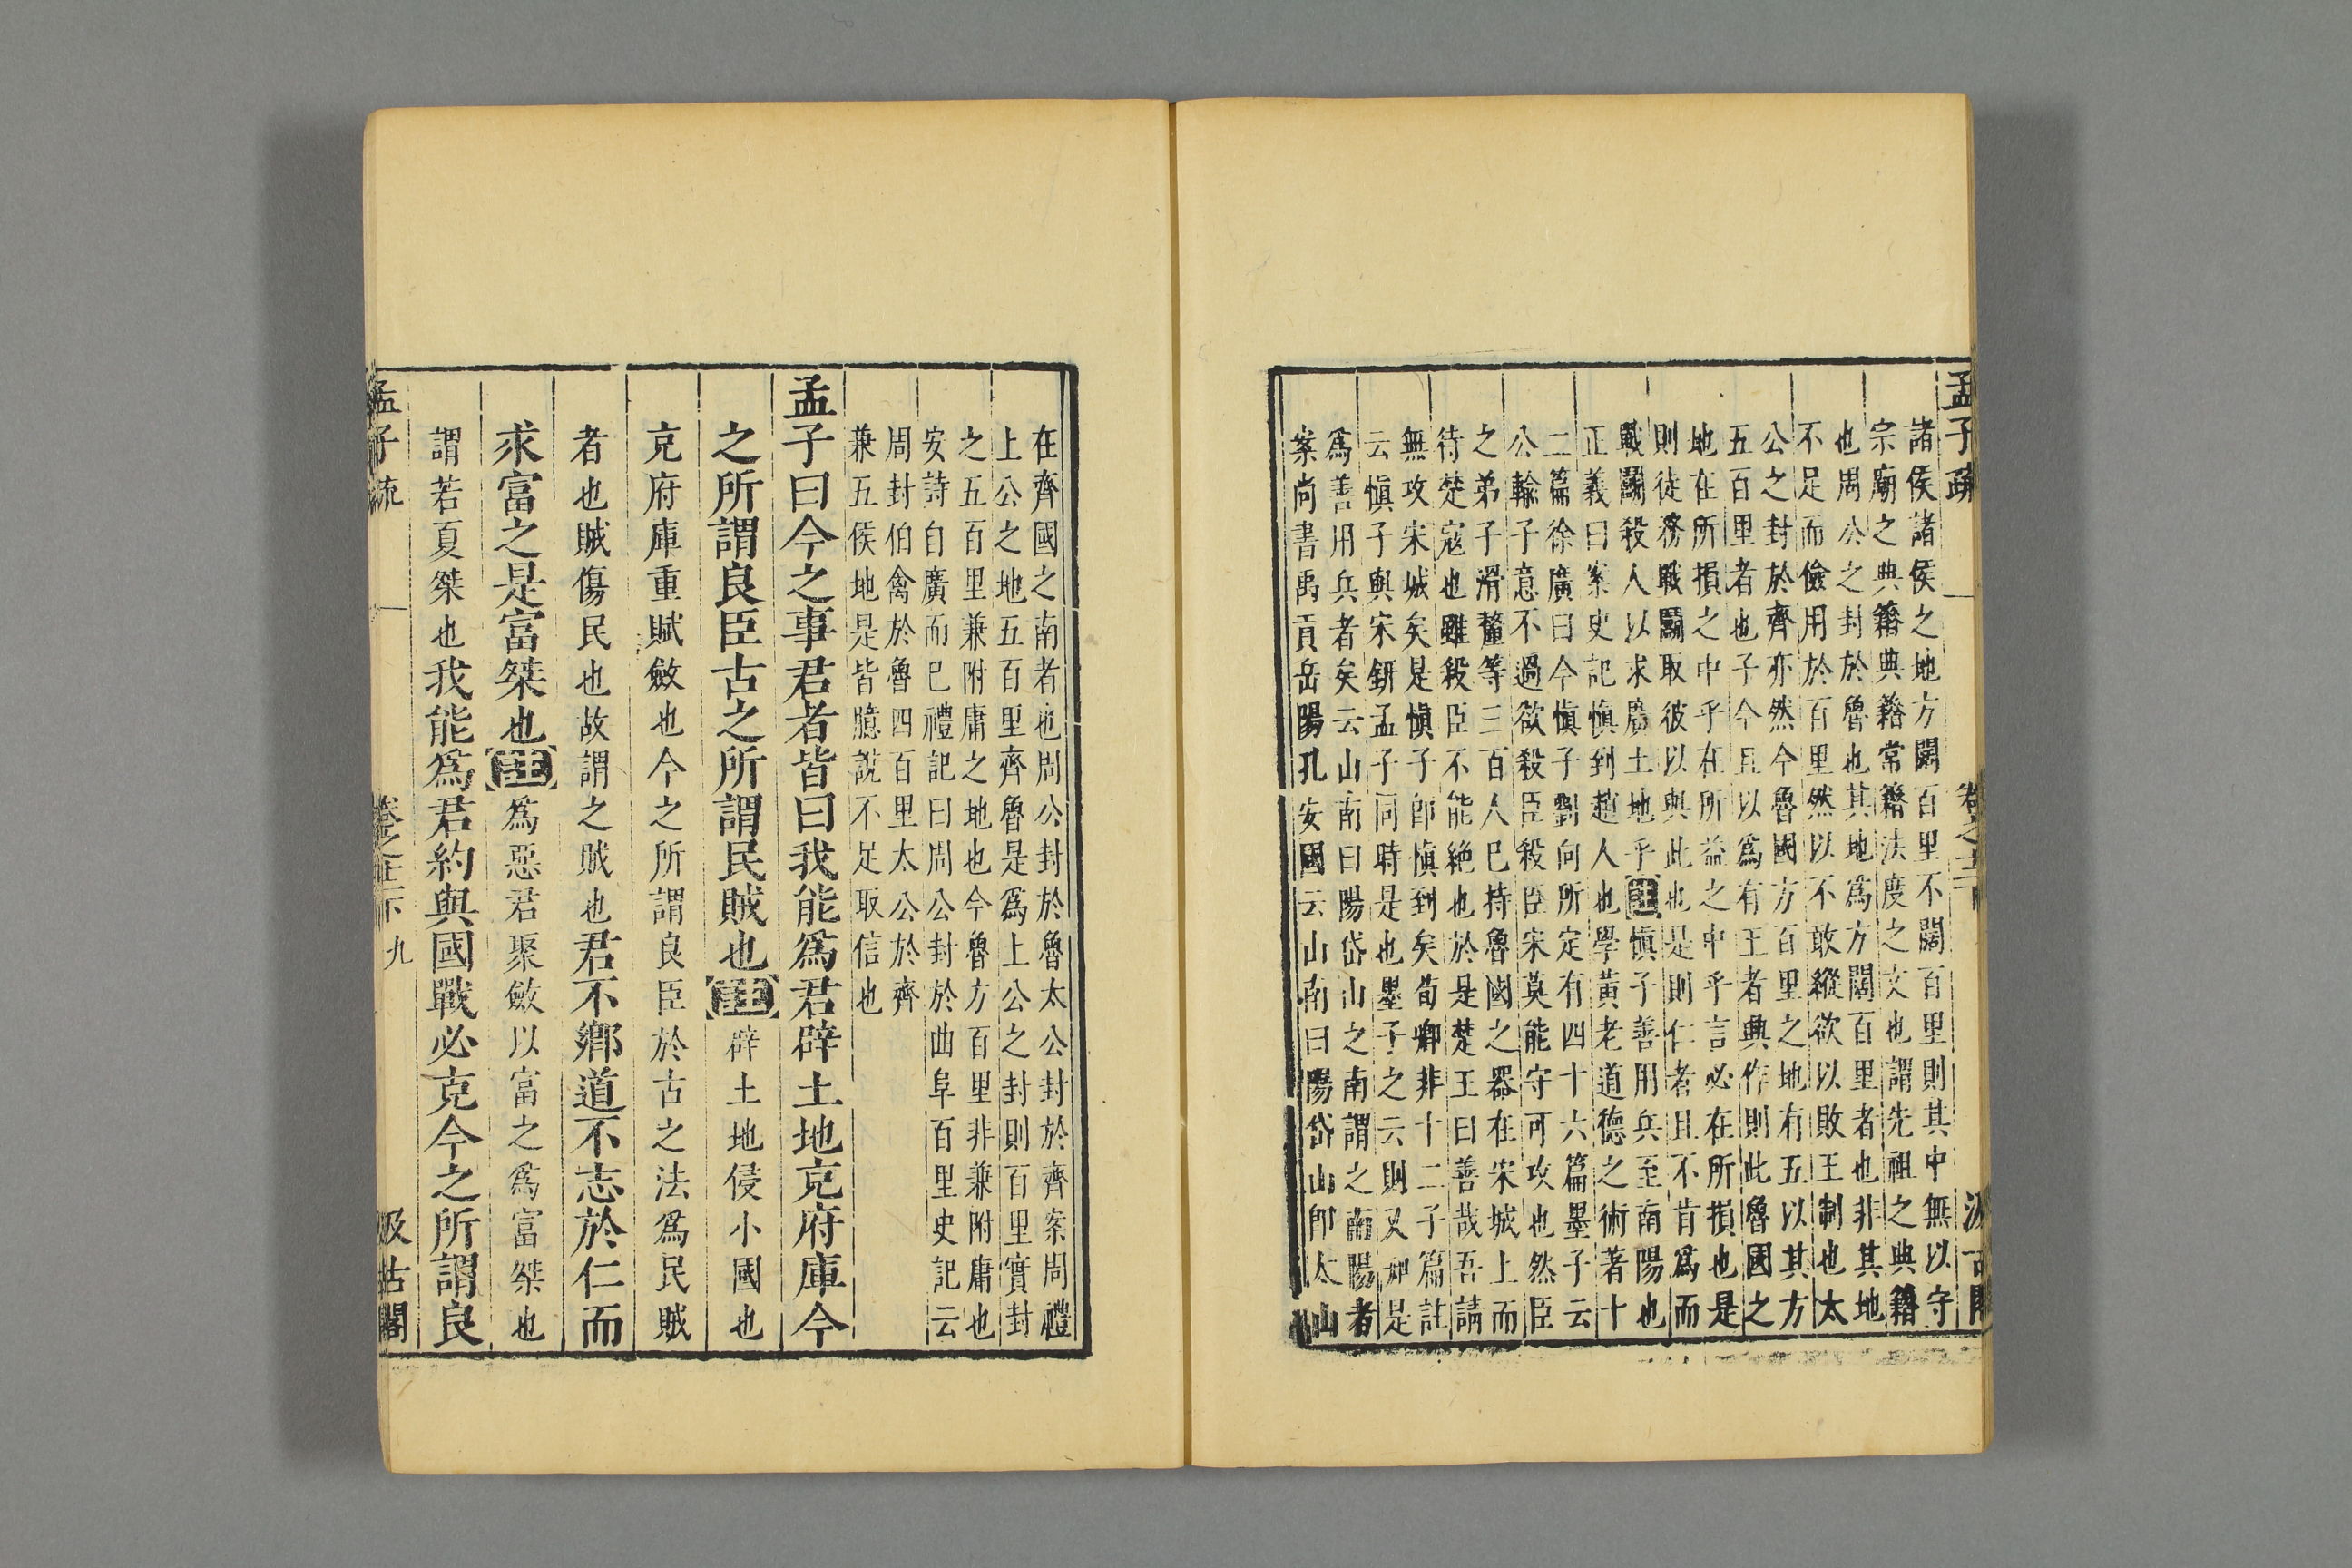 孟子疏
諸侯諸侯之地方闊百里不闊百里則其中無以守
宗廟之典籍典籍常籍法度之文也謂先祖之典籍
也周公之封於魯也其地爲方闊百里者也非其地
不足而儉用於百里然以不敢縱欲以敗王制也太
公之封於齊亦然今魯國方百里之地有五以其方
五百里者也子今且以爲有王者興作則此魯國之
地在所損之中乎在所益之中乎言必在所損也是
則徒務戰鬭取彼以與此也是則仁者且不肯爲而
戰鬭殺人以求廣土地乎註慎子善用兵至南陽也
正義曰案史記慎到趙人也學黃老道德之術著十
二篇徐廣曰今慎子劉向所定有四十六篇墨子云
公輸子意不過欲殺臣殺臣宋莫能守可攻也然臣
之弟子滑釐等三百人已持魯國之器在宋城上而
待楚寇也雖殺臣不能絶也於是楚王曰善哉吾請
無攻宋城矣是慎子即慎到矣荀卿非十二子篇註
云慎子與宋鈃孟子同時是也墨子之云則又如是
爲善用兵者矣云山南曰陽岱山之南謂之南陽者
案尚書禹貢岳陽孔安國云山南曰陽岱山即太山
在齊國之南者也周公封於魯太公封於齊案周禮
上公之地五百里齊魯是爲上公之封則百里實封
之五百里兼附庸之地也今魯方百里非兼附庸也
安詩自廣而已禮記曰周公封於曲阜百里史記云
周封伯禽於魯四百里太公於齊
兼五侯地是皆臆說不足取信也
孟子曰今之事君者皆曰我能爲君辟土地克府庫今
之所謂良臣古之所謂民賊也註辟土地侵小國也
克府庫重賦斂也今之所謂良臣於古之法爲民賊
者也賊傷民也故謂之賊也君不鄉道不志於仁而
求富之是富桀也註爲惡君聚斂以富之爲富桀也
謂若夏桀也我能爲君約與國戰必克今之所謂良
孟子疏
九
汲古閣